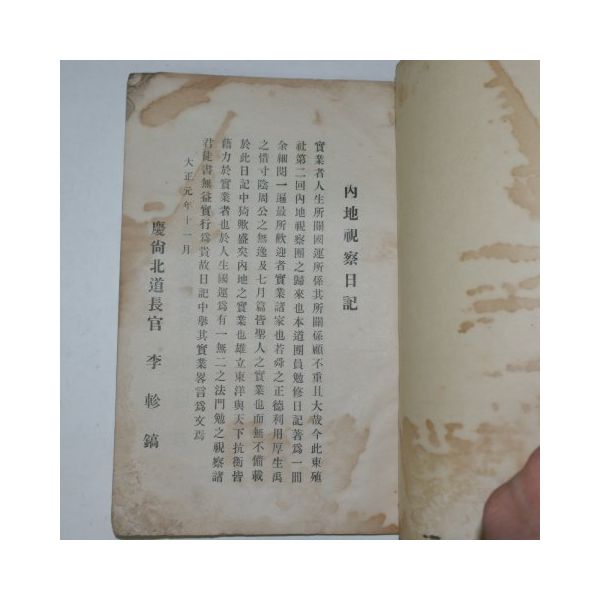 內地視察日記
實業者人生所關國運所係其所關係顧不重且大哉今此東殖
社第二回內地視察團之歸來也本道團員勉修日記著爲一冊
余細閱一遍最所歡迎者實業諸家也若舜之正德利用厚生禹
之惜寸陰周公之無逸及七月篇皆聖人之實業也而無不備載
於此日記中猗歟盛矣內地之實業也雄立東洋與天下抗衡皆
藉力於實業者也於人生國運爲有一無二之法門勉之視察諸
君徒書無益實行爲貴故日記中擧其實業畧言爲文焉
大正元年十一月
慶尙北道長官 李軫鎬